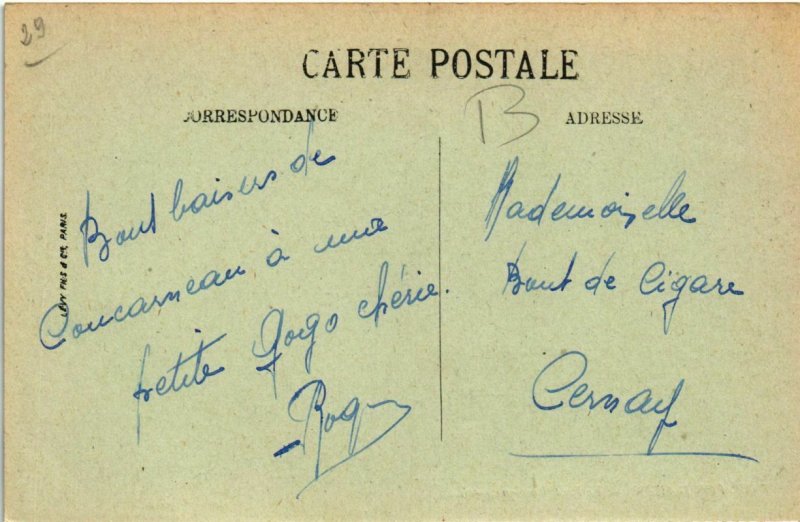 29
CARTE POSTALE
CORRESPONDANCE
B
ADRESSE
LÉVY FILS & Cie, PARIS.
baisers de
Concarneau à une
petite Gogo chérie.
Mademoiselle
Bout de Cigare
Cernay